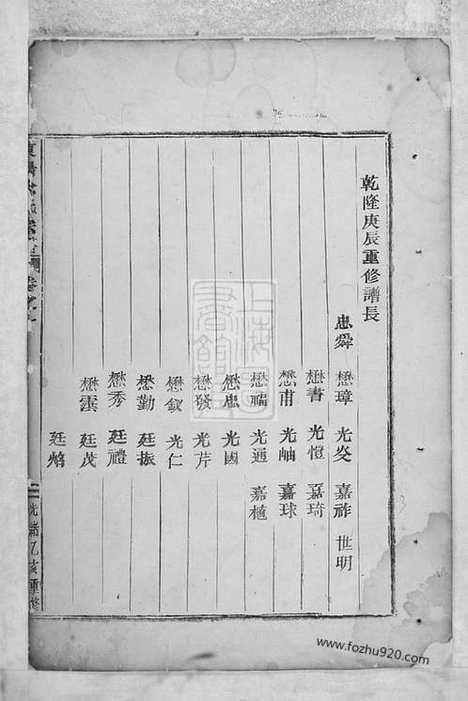 乾隆庚辰重修譜長
忠舜 懋璋 光炎 嘉祚 世明
懋書 光愷 嘉琦
懋甫 光岫 嘉球
懋禧 光通 嘉植
懋忠 光國
懋發 光芹
懋欽 光仁
懋勤 廷振
懋秀 廷禮
懋雲 廷茂
廷焰
光緒乙亥重修
上海圖書館藏
www.fozhu920.com